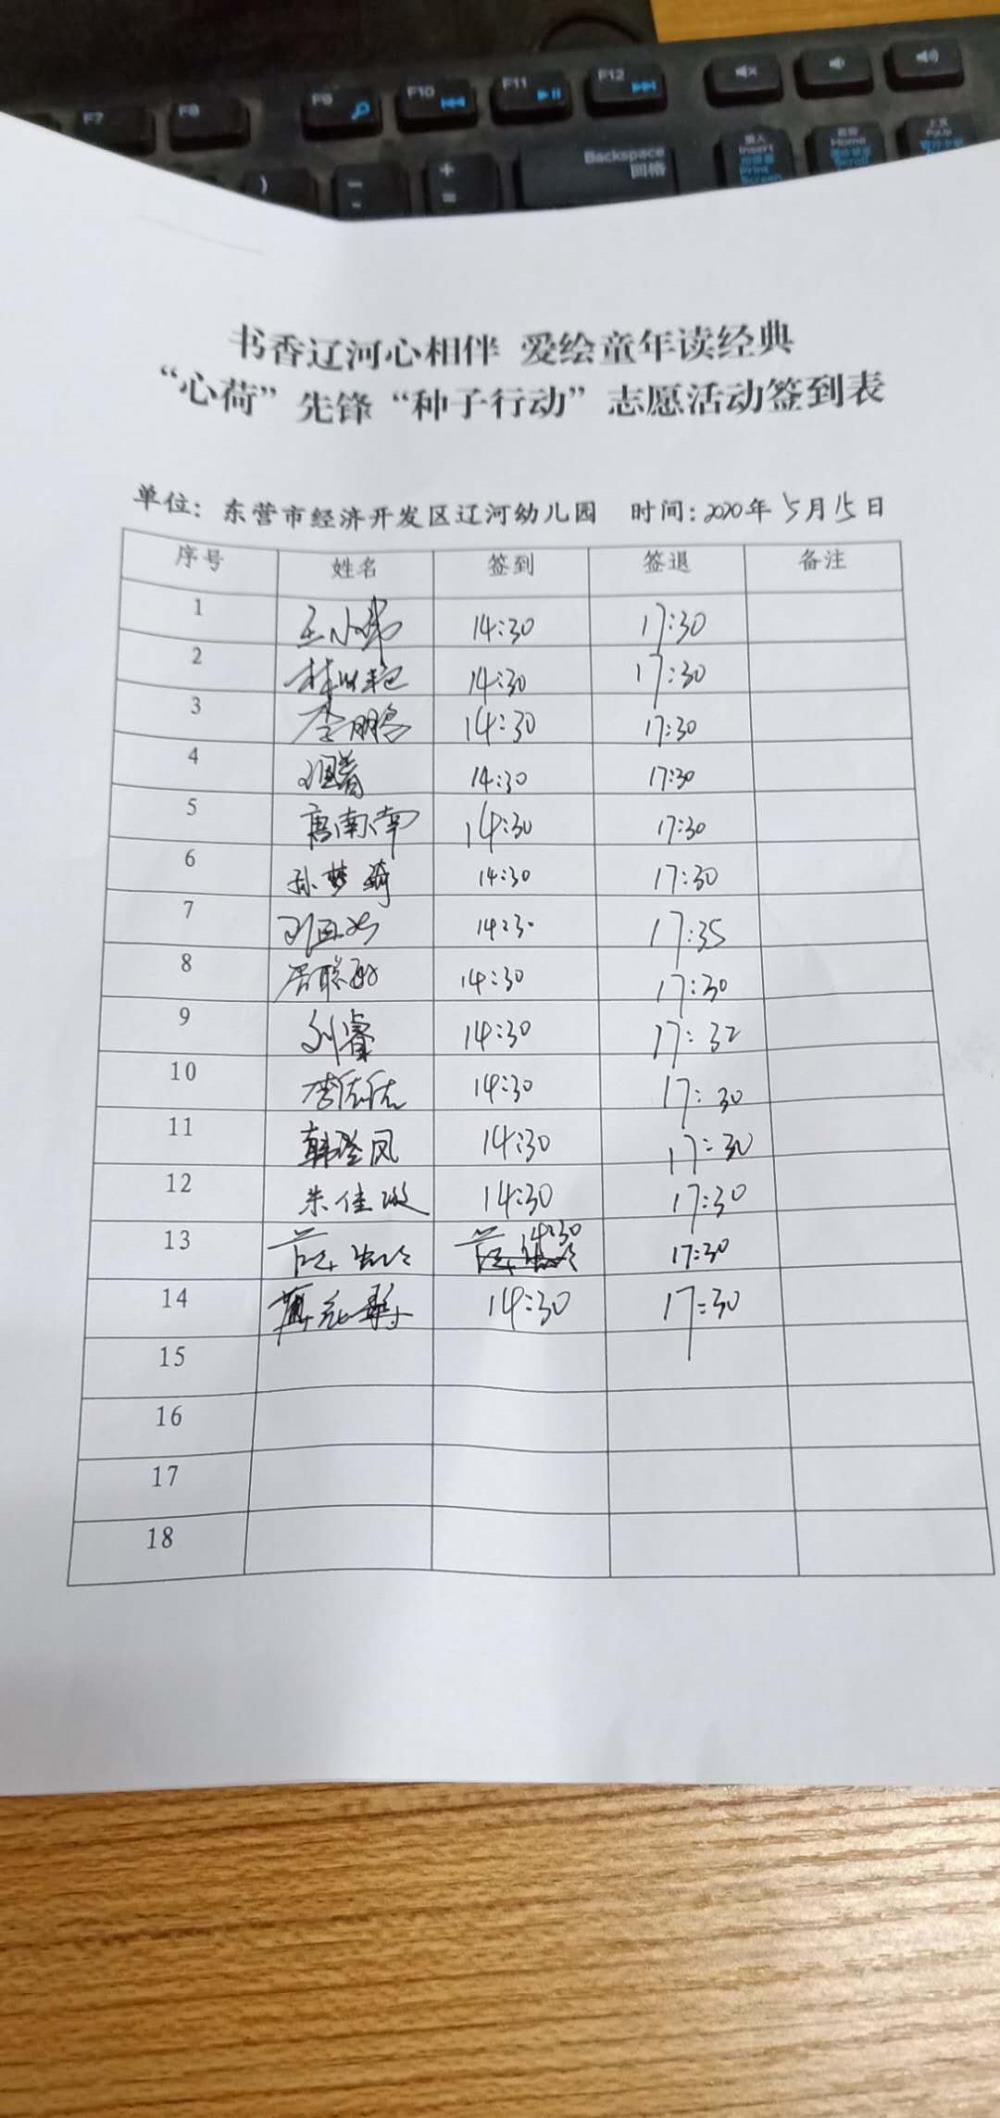 F7 F8 F9 F10 F11 F12
Backspace
回格
Insert
Print
Screen
Home
Scroll
PgUp
书香辽河心相伴 爱绘童年读经典
“心荷”先锋“种子行动”志愿活动签到表
单位：东营市经济开发区辽河幼儿园 时间：2020年5月15日
序号 姓名 签到 签退 备注
1 14:30 17:30
2 14:30 17:30
3 李鹏 14:30 17:30
4 14:30 17:30
5 唐南南 14:30 17:30
6 孙梦琦 14:30 17:30
7 14:30 17:35
8 14:30 17:30
9 刘睿 14:30 17:32
10 李佳佳 14:30 17:30
11 韩 凤 14:30 17:30
12 朱佳 14:30 17:30
13 14:30 17:30
14 14:30 17:30
15
16
17
18